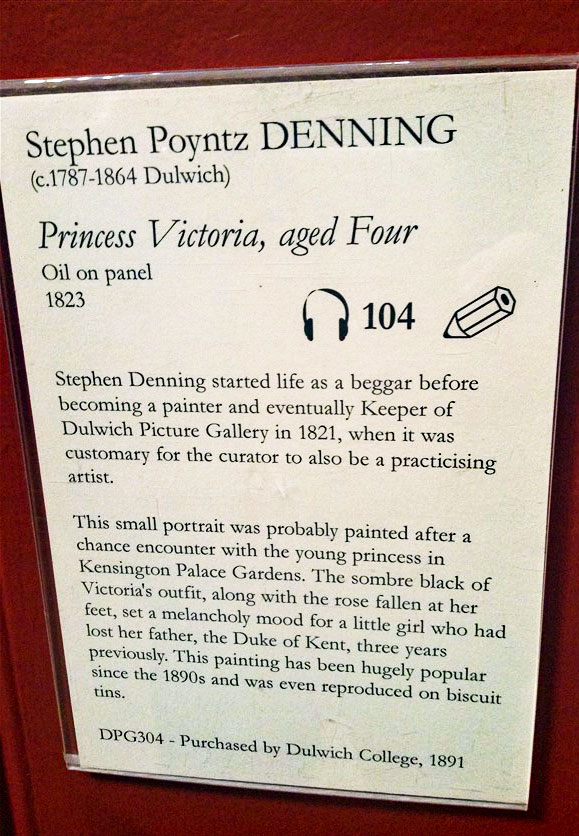 Stephen Poyntz DENNING
(c.1787-1864 Dulwich)
Princess Victoria, aged Four
Oil on panel
1823
104
Stephen Denning started life as a beggar before
becoming a painter and eventually Keeper of
Dulwich Picture Gallery in 1821, when it was
customary for the curator to also be a practicising
artist.
This small portrait was probably painted after a
chance encounter with the young princess in
Kensington Palace Gardens. The sombre black of
Victoria's outfit, along with the rose fallen at her
feet, set a melancholy mood for a little girl who had
lost her father, the Duke of Kent, three years
previously. This painting has been hugely popular
since the 1890s and was even reproduced on biscuit
tins.
DPG304 - Purchased by Dulwich College, 1891